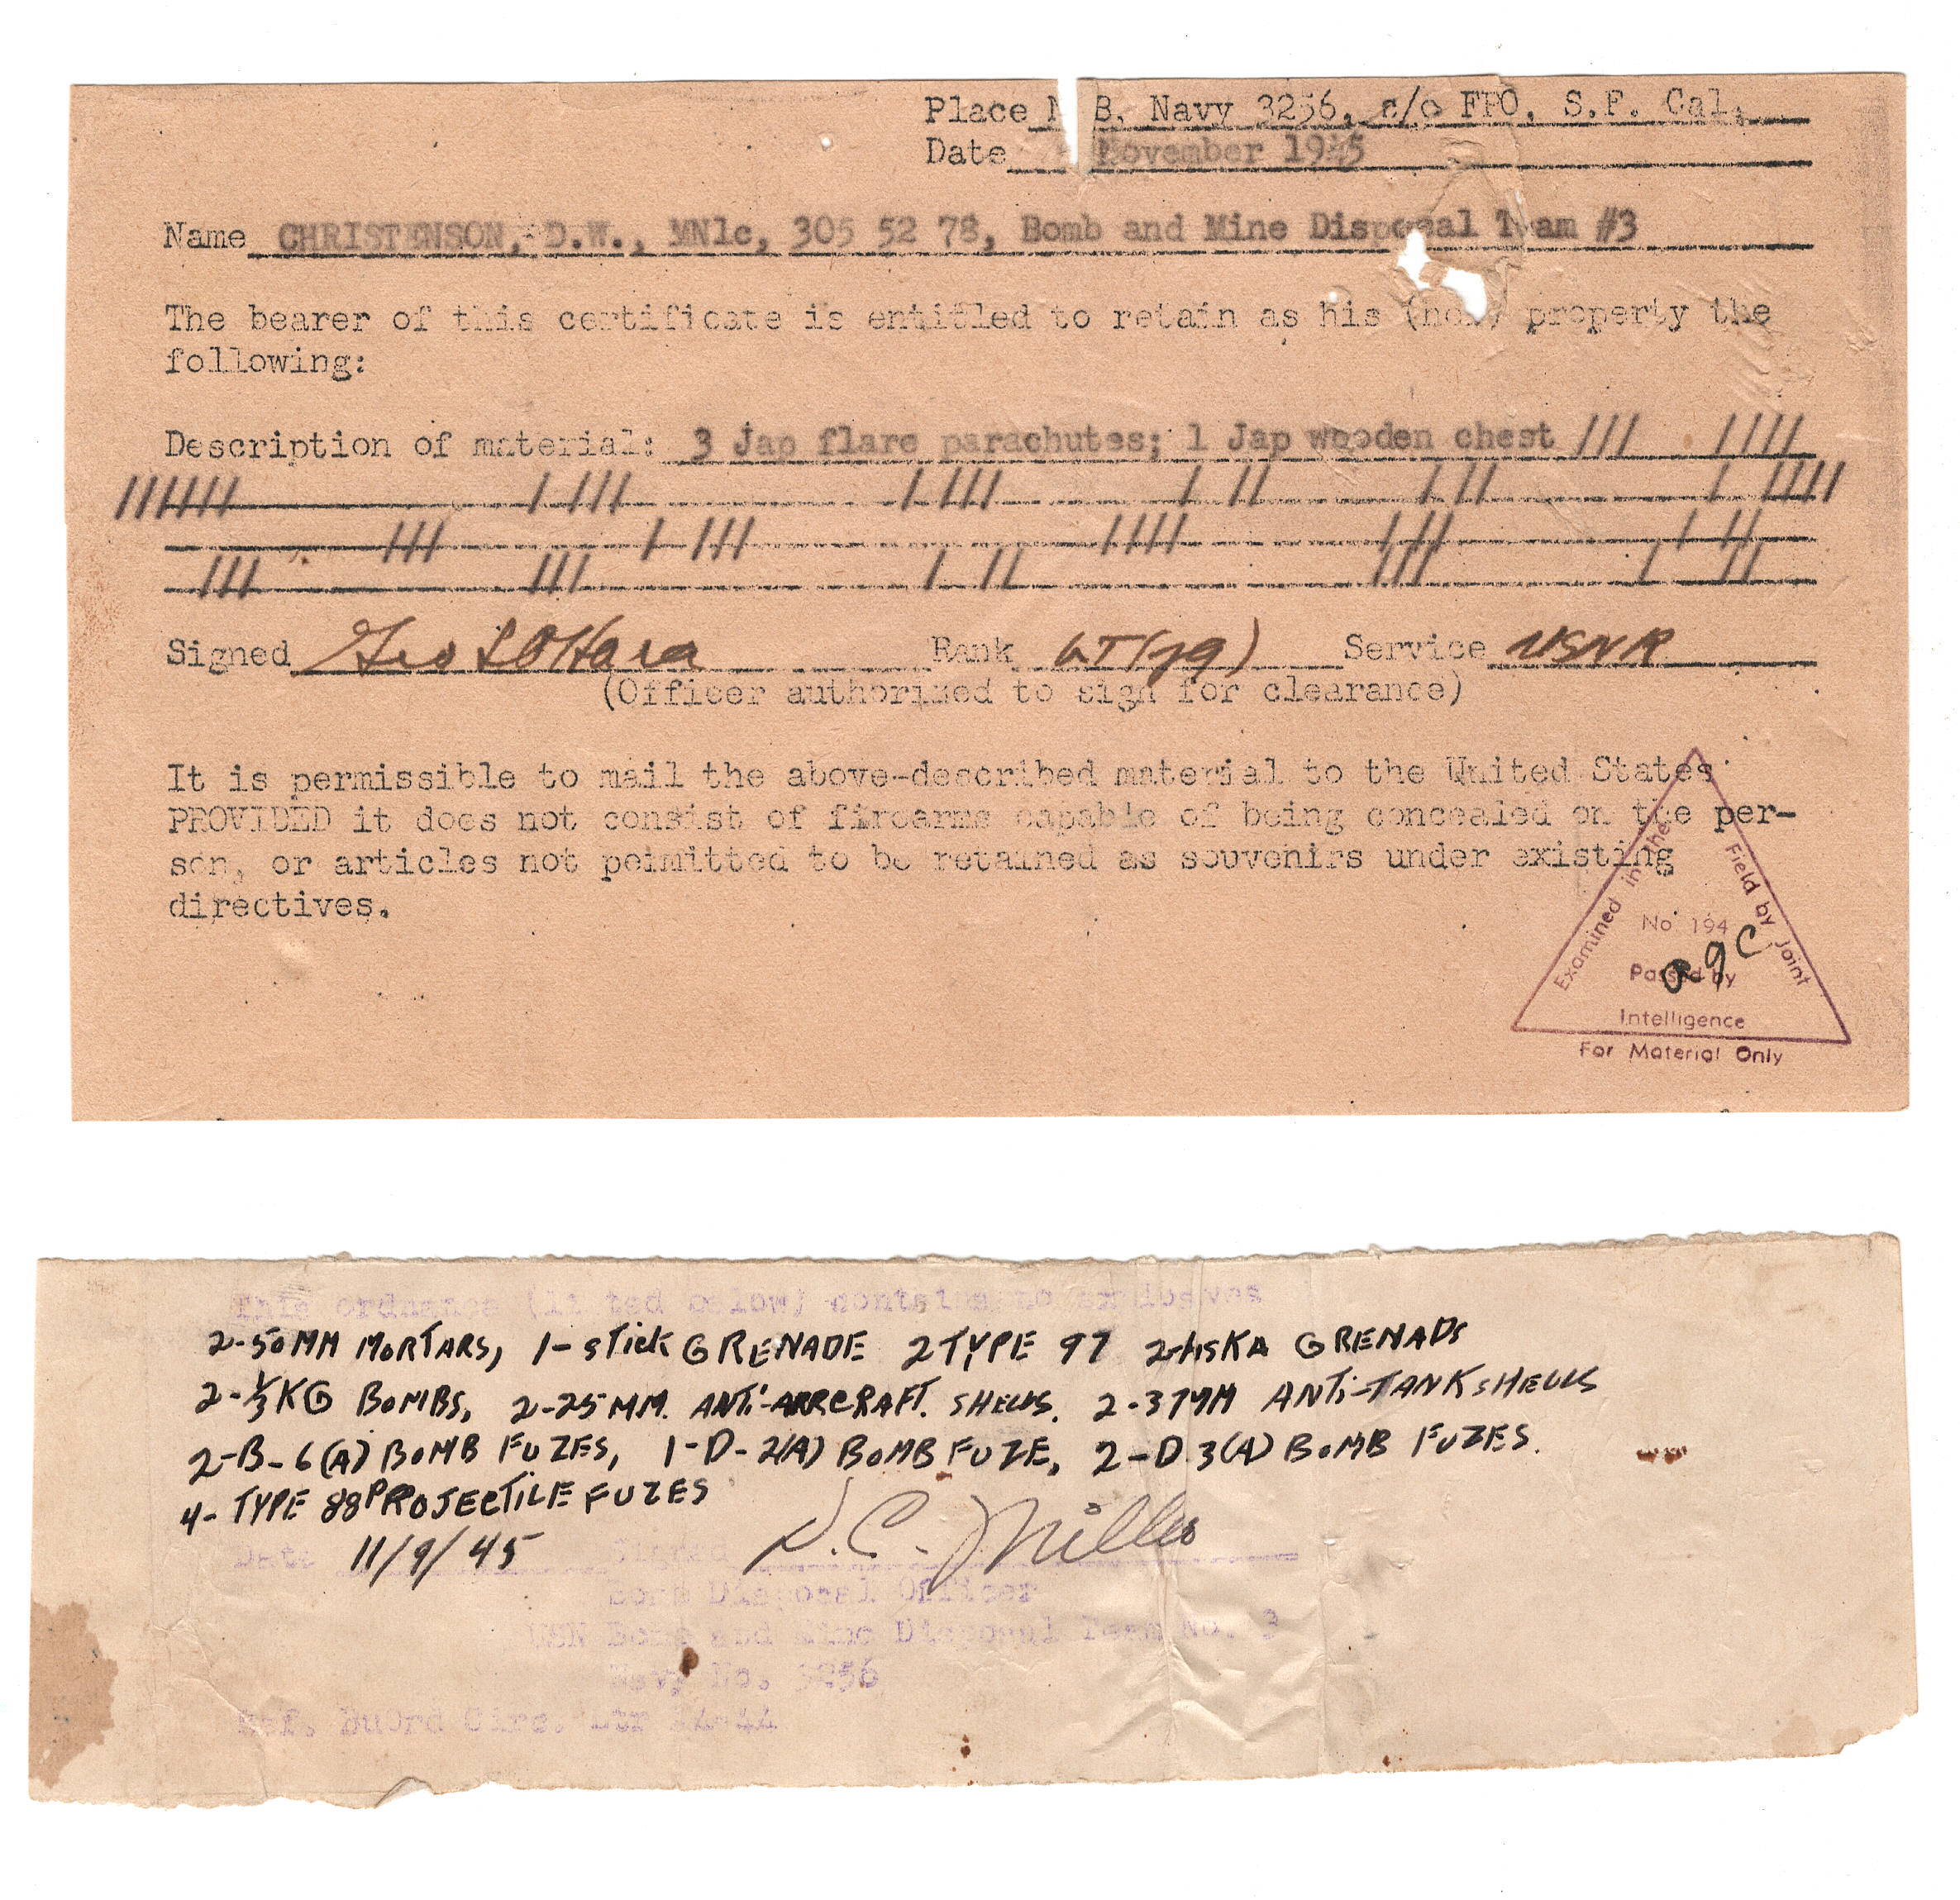 Place N B. Navy 3256, c/o FPO, S.F. Cal.
Date November 1945
Name CHRISTENSON, D.W., MN1c, 305 52 78, Bomb and Mine Disposal Team #3
The bearer of this certificate is entitled to retain as his property the
following:
Description of material: 3 Jap flare parachutes; 1 Jap wooden chest /// ////
////// / /// / /// / // / // / ////
/// / /// //// / // / //
/// /// / // /// / //
Signed Geo L O'Hara Rank LT(jg) Service USNR
(Officer authorized to sign for clearance)
It is permissible to mail the above-described material to the United States
PROVIDED it does not consist of firearms capable of being concealed on the per-
son, or articles not peimitted to be retained as souvenirs under existing
directives.
Examined in the Field by Joint
No. 194
Passed by
Intelligence
For Material Only
This ordnance (li ted below) contains no explosives
2-50MM MORTARS, 1-STICK GRENADE 2 TYPE 97 GRENADS
2-1/3 KG BOMBS, 2-25 MM. ANTI-ARRCRAFT. SHELLS. 2-37MM ANTI-TANK SHELLS
2-B-6(A) BOMB FUZES, 1-D-2(A) BOMB FUZE, 2-D-3(A) BOMB FUZES.
4-TYPE 88 PROJECTILE FUZES
Date 11/9/45 Signed C. Miller
Bomb Disposal Officer
USN Bomb and Mine Disposal Team No. 3
Navy No. 3256
Ref. BuOrd Circ. Ltr